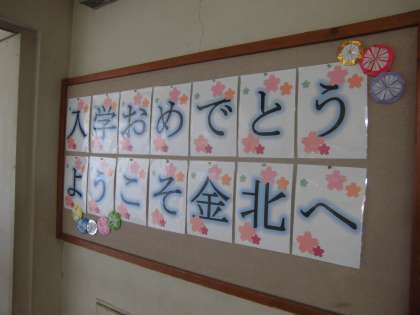 入学おめでとう
ようこそ金北へ